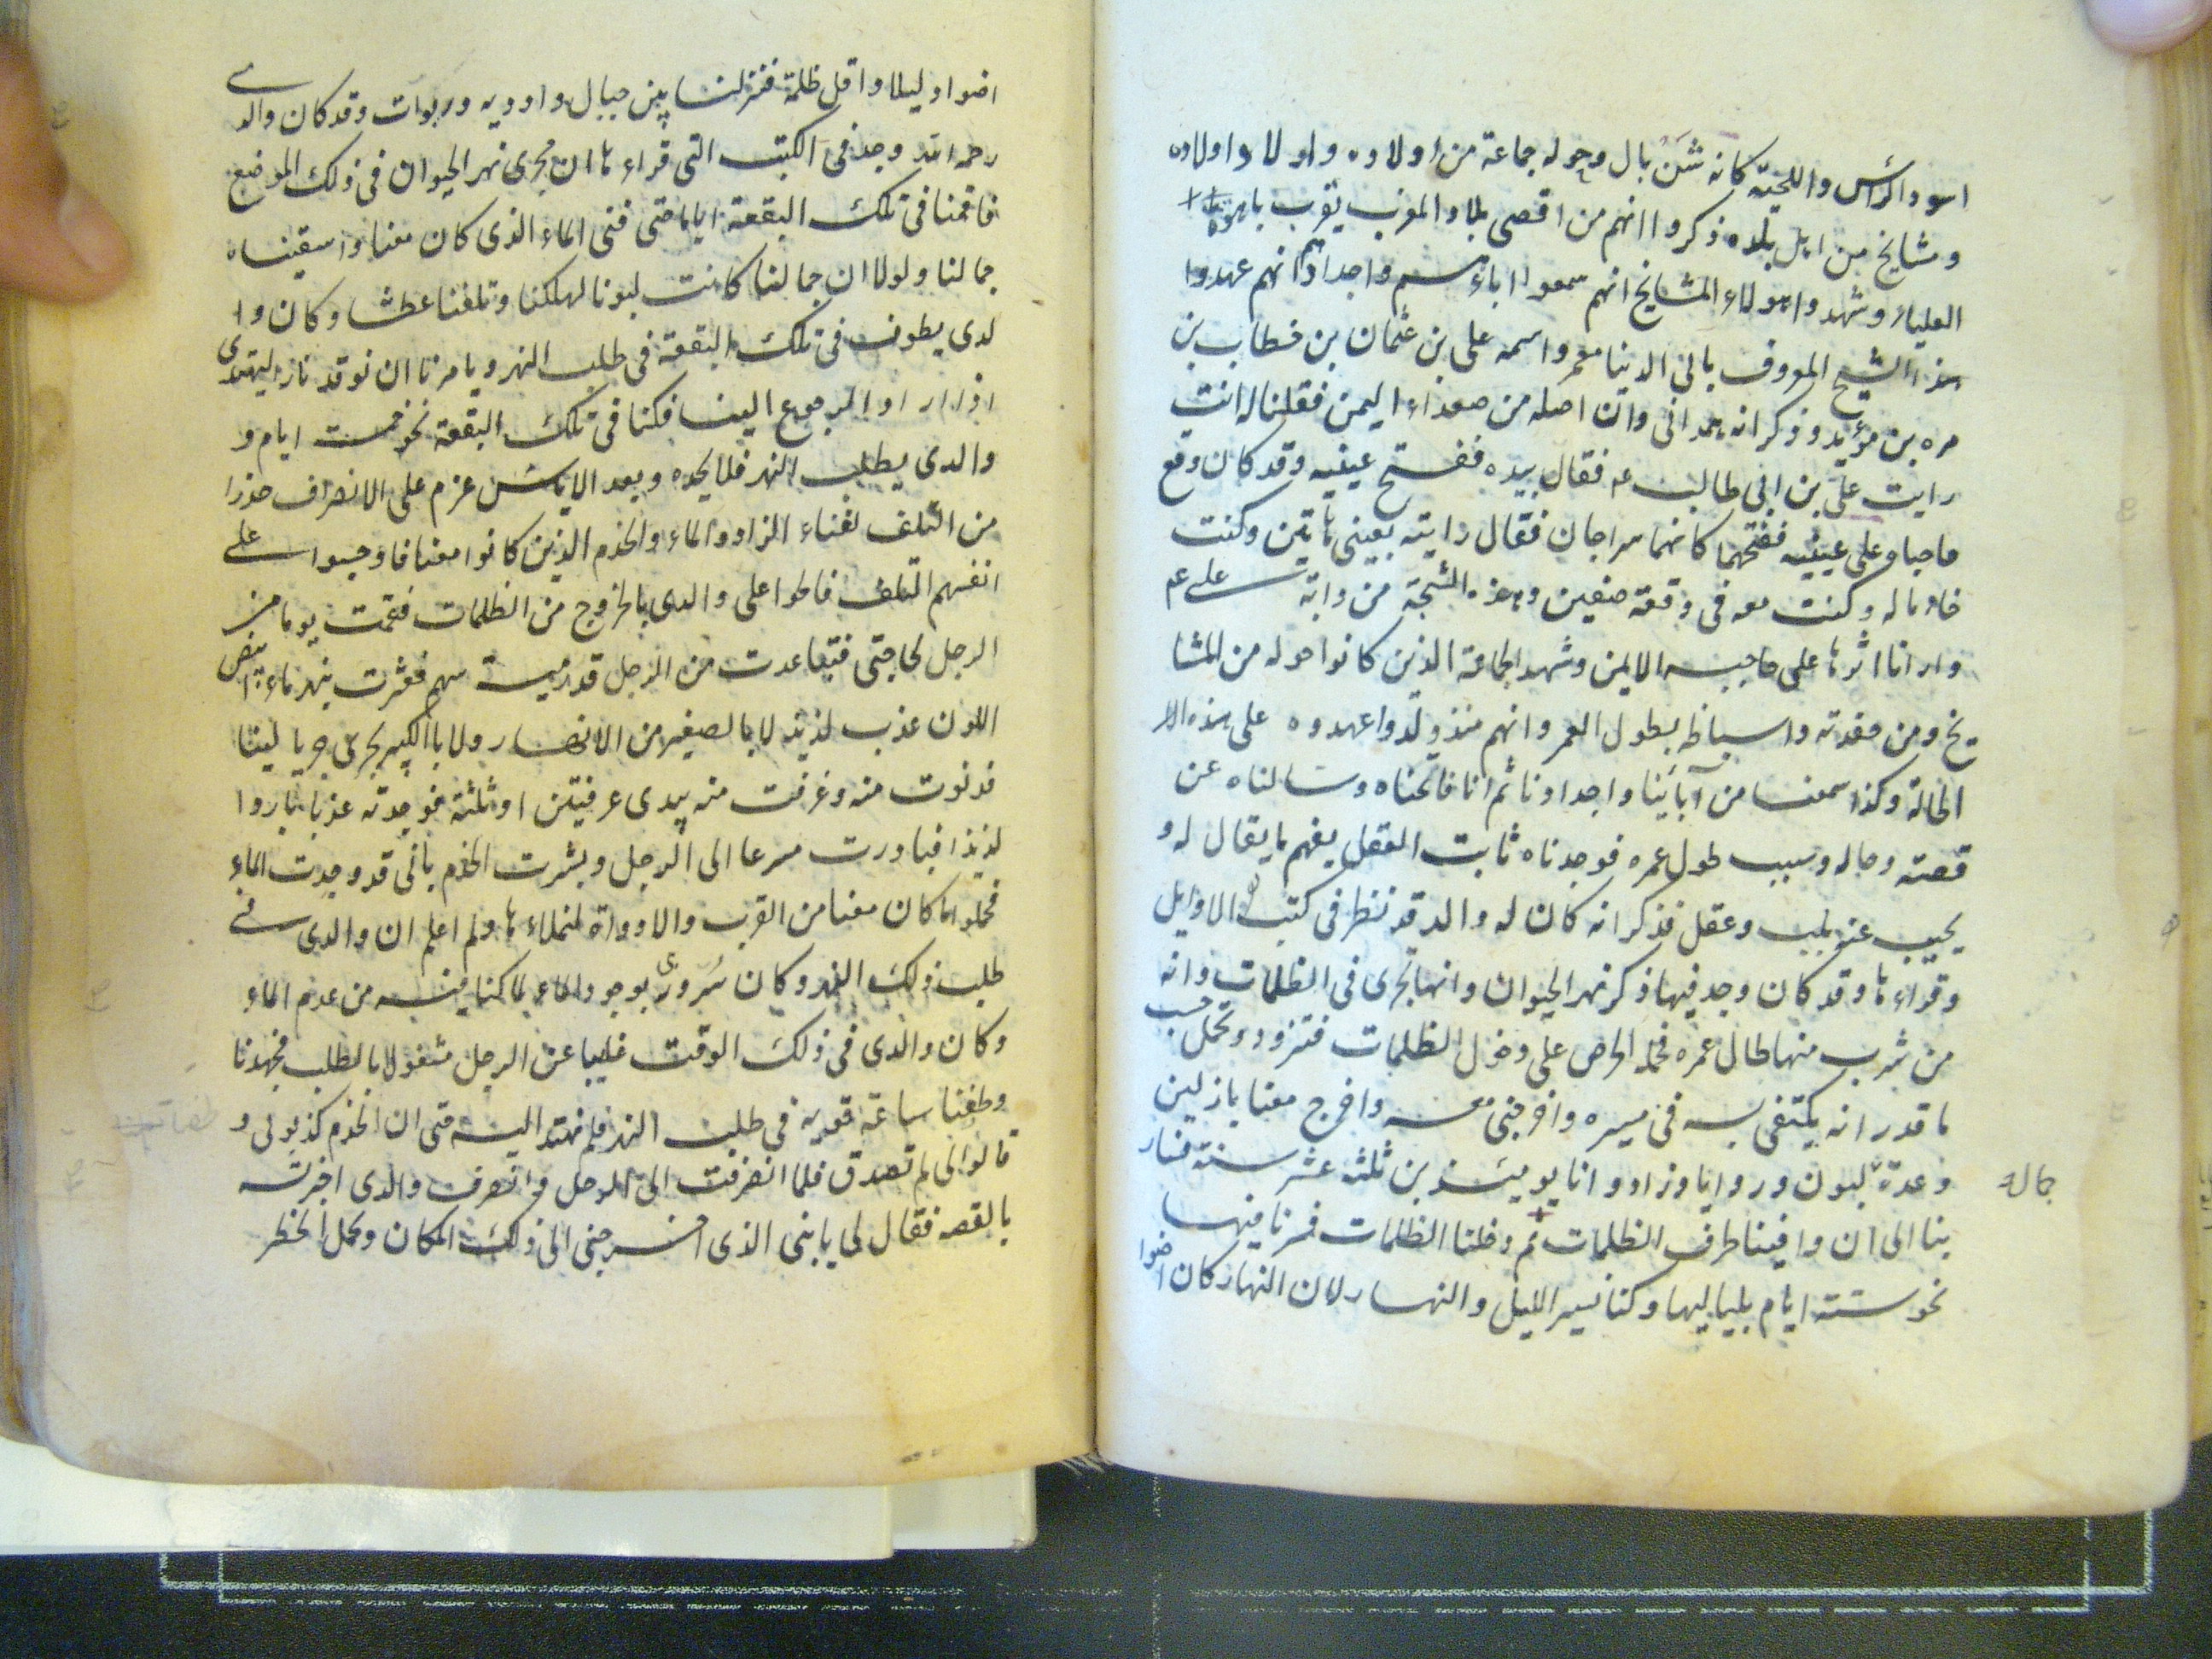 اسود الراس واللحية كانه شن بال وحوله جماعة من اولاده واولاد اولاده
ومشايخ من اهل بلده ذكروا انهم من اقصى بلاد المغرب بقرب باهرة
العليا وشهدوا هولاء المشايخ انهم سمعوا اباءهم واجدادهم انهم عهدوا
هذا الشيخ المعروف بابى الدنيا معمر واسمه على بن عثمان بن خطاب بن
مره بن مؤيد وذكر انه همدانى وان اصله من صعداء اليمن فقلنا له انت
رايت على بن ابى طالب عم فقال بيده ففتح عينيه وقد كان وقع
حاجباه على عينيه ففتحهما كانهما سراجان فقال رايته بعينى هاتين وكنت
خادما له وكنت معه فى وقعة صفين وهذه الشجة من دابة على عم
وارانا اثرها على حاجبه الايمن وشهد الجماعة الذين كانوا حوله من المشا
يخ ومن حفدته واسباطه بطول العمر وانهم منذ ولدوا عهدوه على هذه الا
الحالة وكذا سمعنا من آبائنا واجدادنا ثم انا فاتحناه وسالناه عن
قصته وحاله وسبب طول عمره فوجدناه ثابت العقل يفهم ما يقال له و
يجيب عنه بلب وعقل فذكر انه كان له والد قد نظر فى كتب الاوايل
وقراءها وقد كان وجد فيها ذكر نهر الحيوان وانها تجرى فى الظلمات وانه
من شرب منها طال عمره فحمله الحرص على دخول الظلمات فتزود وتحمل حسب
ما قدر انه يكتفى به فى مسيره واخرجنى معه واخرج معنا بازلين
وعدة لبون وروايا وزاد وانا يومئذ بن ثلثه عشر سنة فسار
جماله
بنا الى ان وافينا طرف الظلمات ثم دخلنا الظلمات فسرنا فيها
نحو ستة ايام بلياليها وكنا نسير الليل والنهار لان النهار كان اضوا
اضوا وليلا واقل ظلمة فنزلنا بين جبال واوديه وربوات وقد كان والدى
رحمه الله وجد فى الكتب التى قراءها ان مجرى نهر الحيوان فى ذلك الموضع
فاقمنا فى تلك البقعة اياما حتى فنى الماء الذى كان معنا واسقيناه
جمالنا ولولا ان جمالنا كانت لبونا لهلكنا وتلفنا عطشا وكان وا
لدى يطوف فى تلك البقعة فى طلب النهر ويامرنا ان نوقد نارا ليهتدى
اذا اراد الرجوع الينا فكنا فى تلك البقعة نحو خمست ايام و
والدى يطلب النهر فلا يجده وبعد الاياس عزم على الانصراف حذرا
من التلف لفناء الزاد والماء والخدم الذين كانوا معنا فاوجسوا على
انفسهم التلف فالحوا على والدى بالخروج من الظلمات فقمت يوما من
الرحل لحاجتى فتباعدت من الرحل قدر رمية سهم فعثرت بنهر ماء ابيض
اللون عذب لذيذ لا بالصغير من الانهار ولا بالكبير يجرى جريا لينا
فدنوت منه وغرفت منه بيدى غرفيتن او ثلثة فوجدته عذبا باردا
لذيذا فبادرت مسرعا الى الرحل وبشرت الخدم بانى قد وجدت الماء
فحملوا ما كان معنا من القرب والادواة لنملاءها ولم اعلم ان والدى فى
طلب ذلك النهر وكان سرورى بوجود الماء لما كنا فيه من عدم الماء
وكان والدى فى ذلك الوقت غايبا عن الرحل مشغولا بالطلب فجهدنا
وطفنا ساعة قويه فى طلب النهر فلم نهتد اليه حتى ان الخدم كذبونى و
قالوا لى لم تصدق فلما انصرفت الى الرحل وانصرف والدى اخبرته
بالقصه فقال لى يا بنى الذى اخرجنى الى ذلك المكان وتحمل الخطر